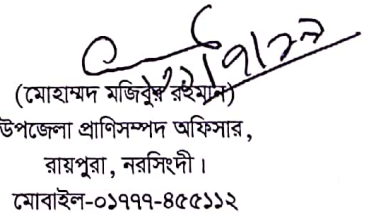 (মোহাম্মদ মজিবুর রহমান)
উপজেলা প্রাণিসম্পদ অফিসার,
রায়পুরা, নরসিংদী।
মোবাইল-০১৭৭৭-৪৫৫১১২